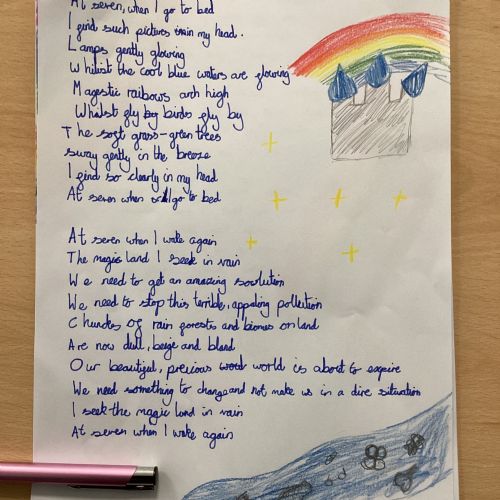 At seven, when I go to bed
I find such pictures in my head.
Lamps gently glowing
Whilst the cool blue waters are flowing
Magestic raibows arch high
Whilst fly birds fly by
The soft grass-green trees
sway gently in the breeze
I find so clearly in my head
At seven when I go to bed
At seven when I wake again
The magic land I seek in vain
We need to get an amazing soulution
We need to stop this terrible, appaling pollution
Chunks of rain forests and biomes on land
Are now dull, beige and bland
Our beautiful, precious world is about to expire
We need something to change and not make us in a dire situation
I seek the magic land in vain
At seven when I wake again